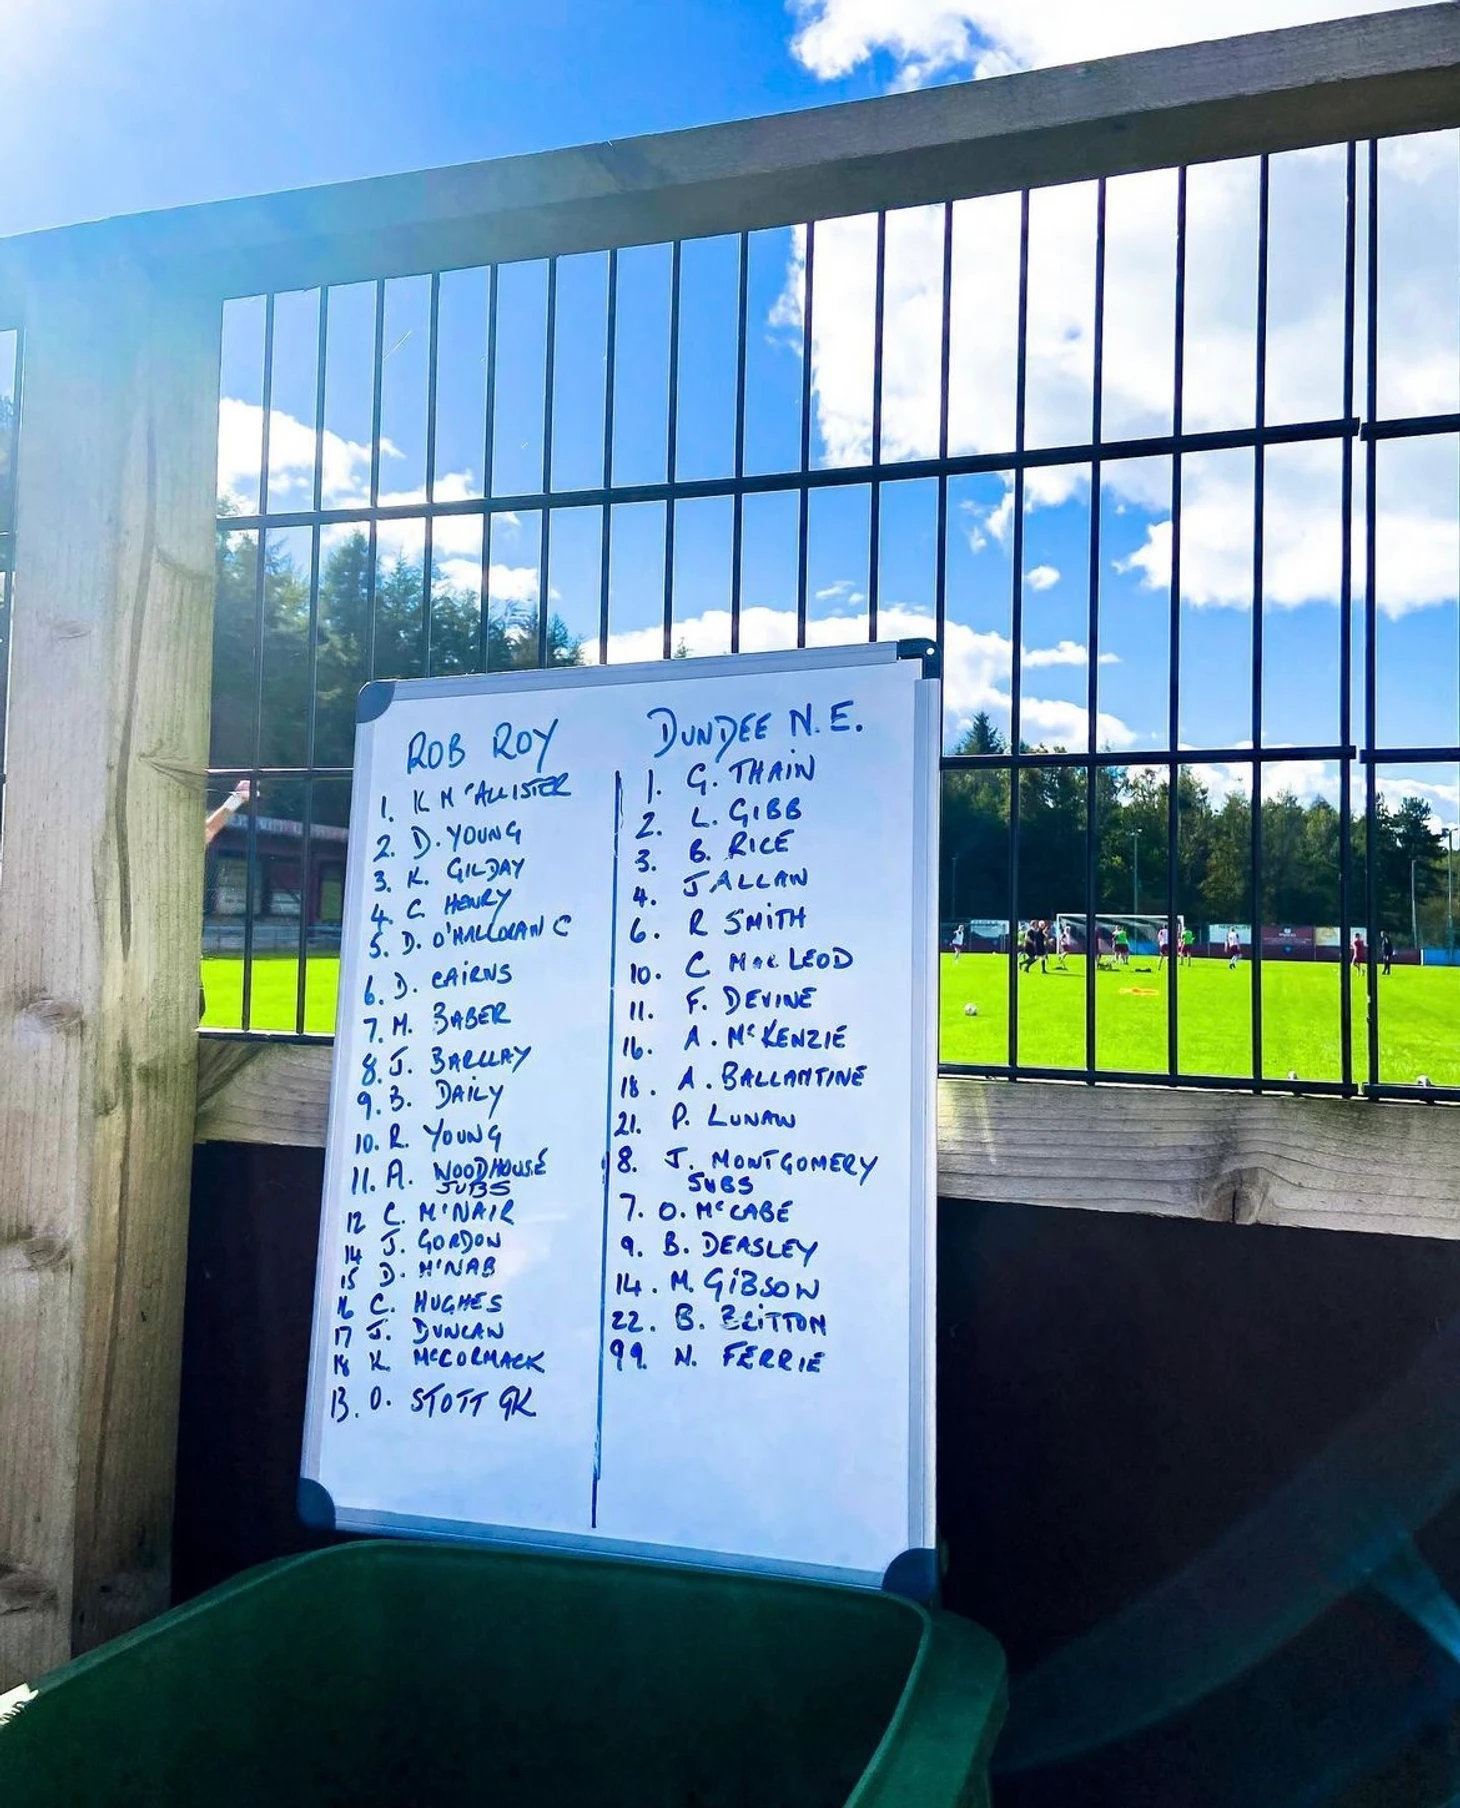 ROB ROY
1. K McALLISTER
2. D. YOUNG
3. K. GILDAY
4. C HENRY
5. D. O'HALLORAN C
6. D. CAIRNS
7. M. BABER
8. J. BARCLAY
9. B. DAILY
10. R. YOUNG
11. A. WOODHOUSE
SUBS
12 C. McNAIR
14 J. GORDON
15 D. McNAB
16 C. HUGHES
17 J. DUNCAN
18 K. McCORMACK
13. O. STOTT GK
DUNDEE N.E.
1. G. THAIN
2. L. GIBB
3. B. RICE
4. J ALLAN
6. R SMITH
10. C MacLEOD
11. F. DEVINE
16. A. McKENZIE
18. A. BALLANTINE
21. P. LUNAN
8. J. MONTGOMERY
SUBS
7. O. McCABE
9. B. DEASLEY
14. M. GIBSON
22. B. BRITTON
99. N. FERRIE